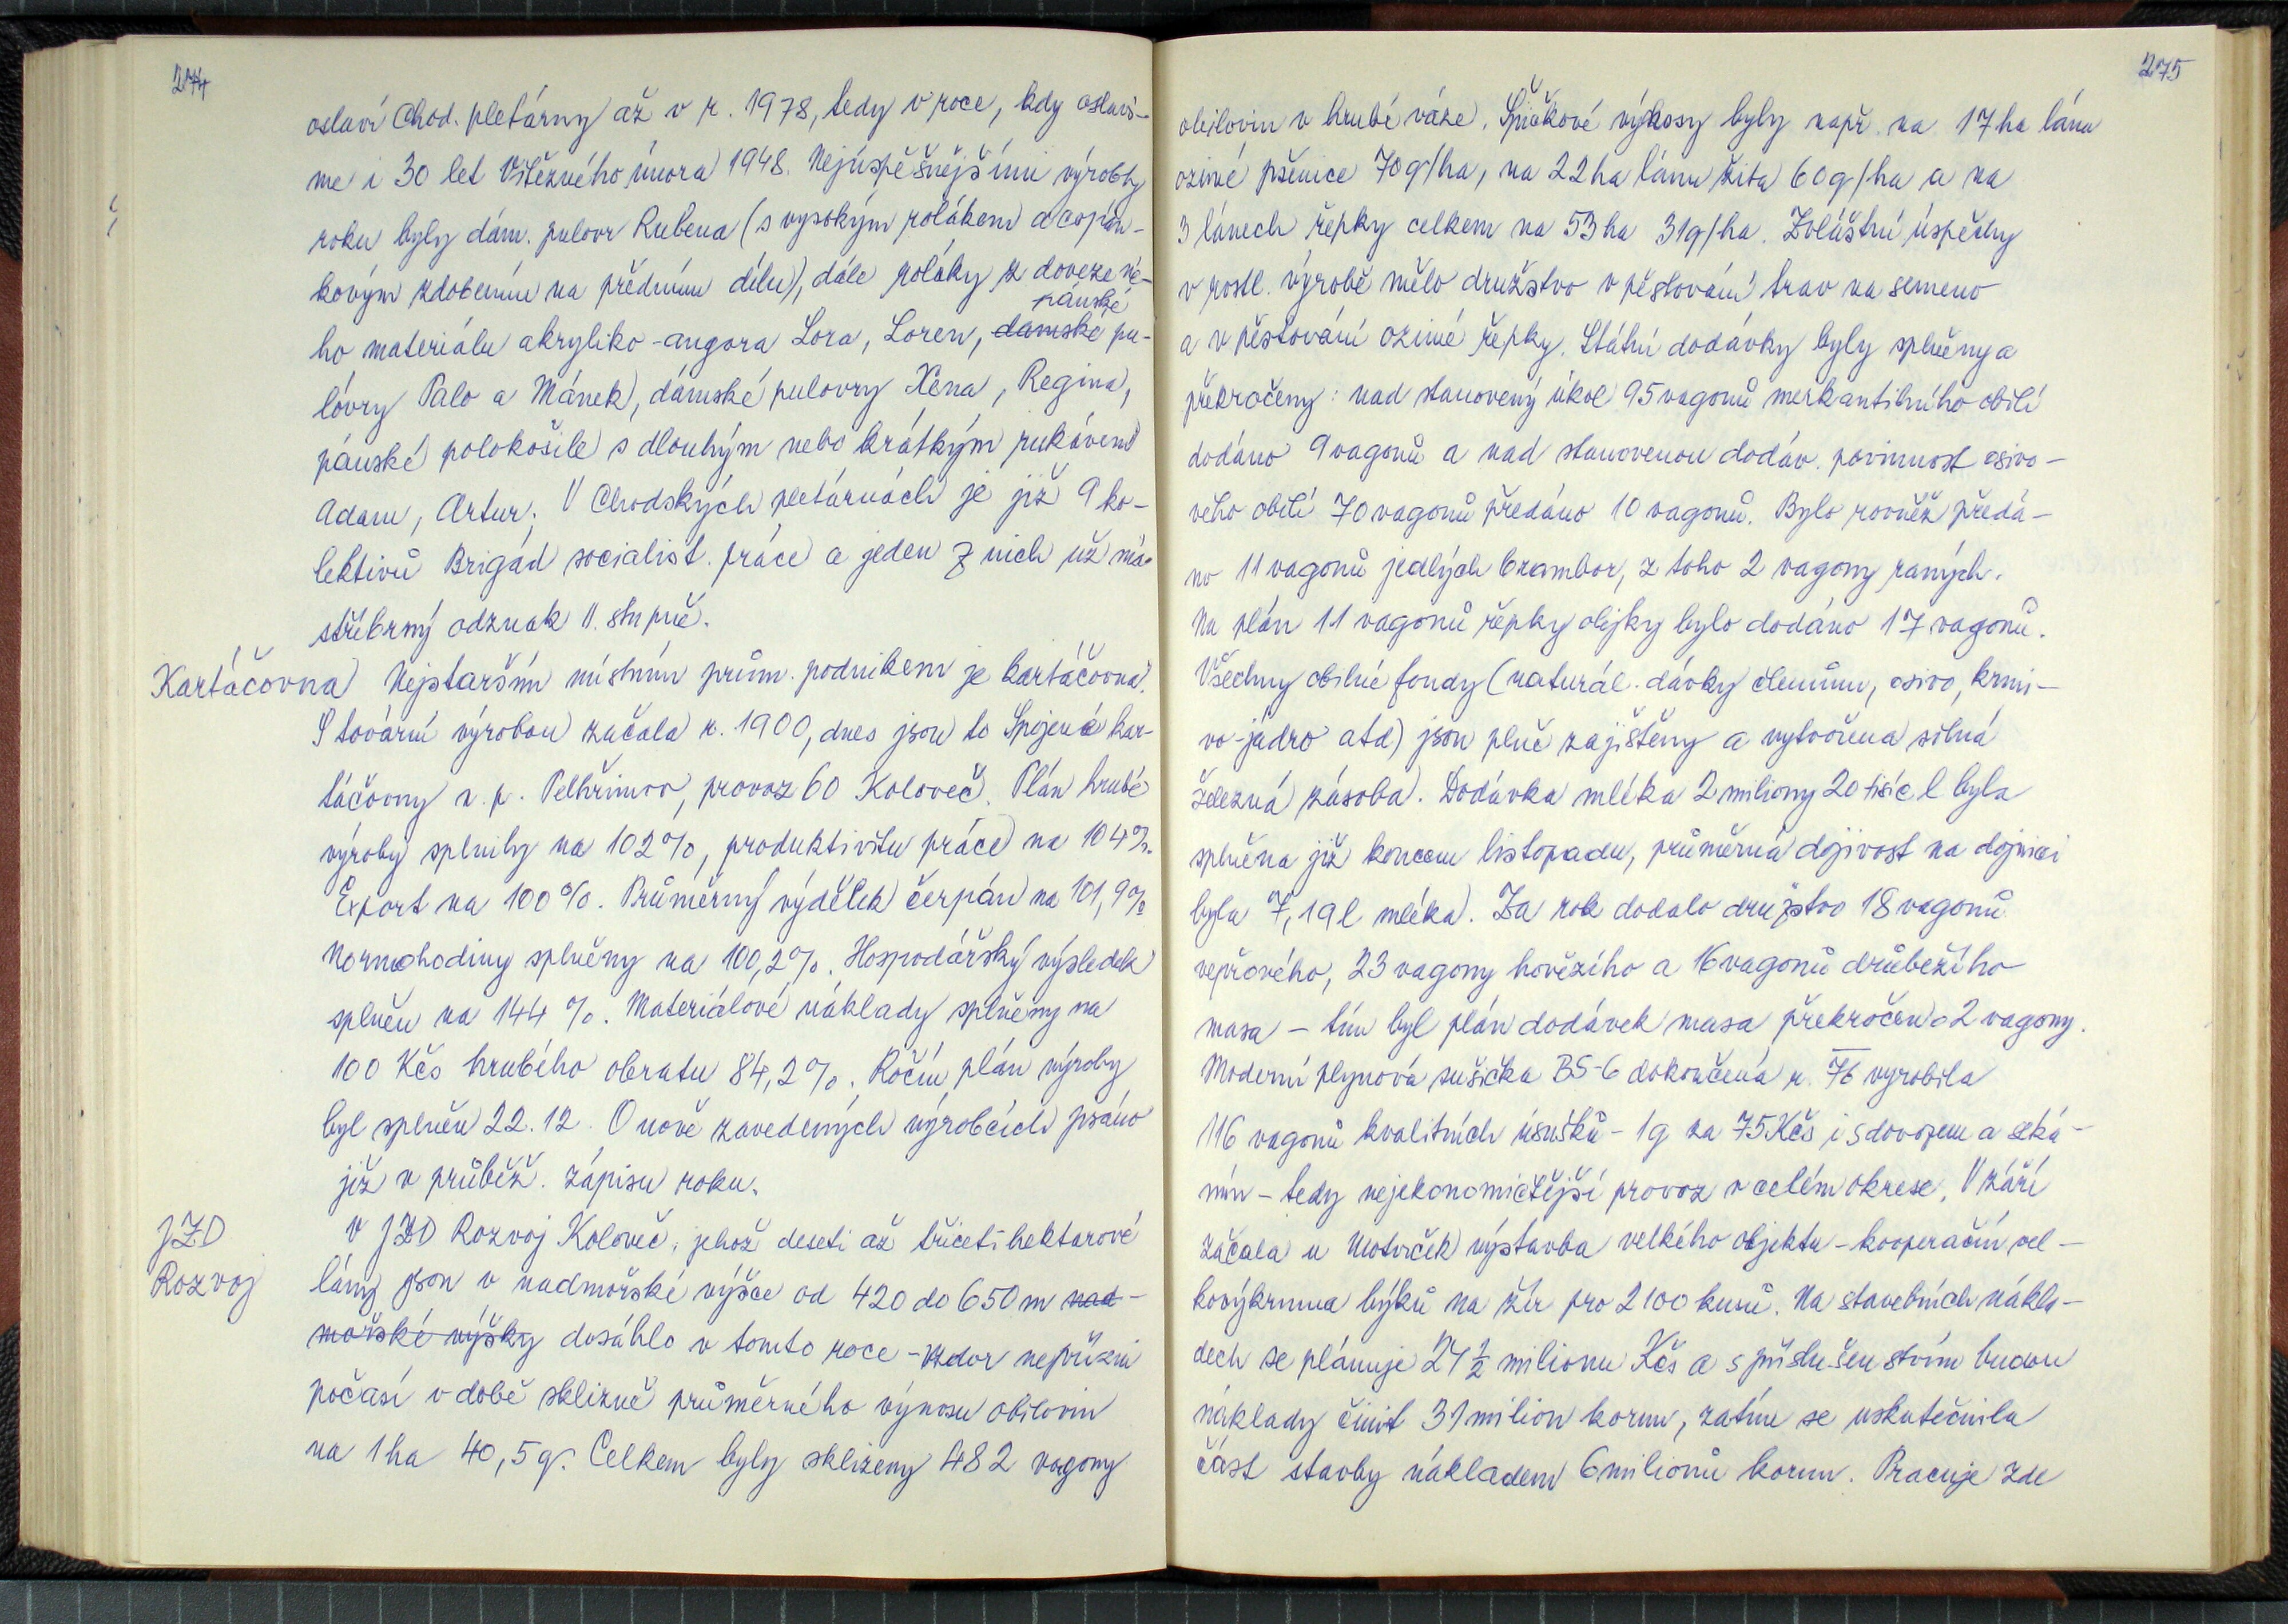 274
oslaví Chod. pletárny až v r. 1978, tedy v roce, kdy oslaví-
me i 30 let Vítězného února 1948. Nejúspěšnějšími výrobky
roku byly dám. pulovr Rubena (s vysokým rolákem a copán-
kovým zdobením na předním dílu), dále roláky z dovezené-
ho materiálu akryliko-angora Lora, Loren, dámské pánské pu-
lóvry Palo a Mánek, dámské pulovry Xena, Regina,
pánské polokošile s dlouhým nebo krátkým rukávem
Adam, Artur. V Chodských pletárnách je již 9 ko-
lektivů Brigád socialist. práce a jeden z nich už má
stříbrný odznak II. stupně.
Kartáčovna Nejstarším místním prům. podnikem je kartáčovna.
S tovární výrobou začala r. 1900, dnes jsou to Spojené kar-
táčovny n. p. Pelhřimov, provoz 60 Koloveč. Plán hrubé
výroby splnily na 102%, produktivitu práce na 104%.
Export na 100%. Průměrný výdělek čerpán na 101,9%
Normohodiny splněny na 100,2%. Hospodářský výsledek
splněn na 144 %. Materiálové náklady splněny na
100 Kčs hrubého obratu 84,2%. Roční plán výroby
byl splněn 22. 12. O nově zavedených výrobcích psáno
již v průběž. zápisu roku.
JZD V JZD Rozvoj Koloveč, jehož deseti až třicetihektarové
Rozvoj lány jsou v nadmořské výšce od 420 do 650 m nad-
mořské výšky dosáhlo v tomto roce - vzdor nepřízni
počasí v době sklizně průměrného výnosu obilovin
na 1 ha 40,5 q. Celkem byly sklizeny 482 vagony
275
obilovin v hrubé váze. Špičkové výnosy byly např. na 17 ha lánu
ozimé pšenice 70 q/ha, na 22 ha lánu žita 60 q/ha a na
3 lánech řepky celkem na 53 ha 31 q/ha. Zvláštní úspěchy
v rostl. výrobě mělo družstvo v pěstování trav na semeno
a v pěstování ozimé řepky. Státní dodávky byly splněny a
překročeny: nad stanovený úkol 95 vagonů merkantilního obilí
dodáno 9 vagonů a nad stanovenou dodáv. povinnost osivo-
vého obilí 70 vagonů předáno 10 vagonů. Bylo rovněž předá-
no 11 vagonů jedlých brambor, z toho 2 vagony raných.
Na plán 11 vagonů řepky olejky bylo dodáno 17 vagonů.
Všechny obilné fondy (naturál. dávky členům, osivo, krmi-
vo-jádro atd) jsou plně zajištěny a vytvořena silná
železná zásoba. Dodávka mléka 2 miliony 20 tisíc l byla
splněna již koncem listopadu, průměrná dojivost na dojnici
byla 7,19 l mléka. Za rok dodalo družstvo 18 vagonů
vepřového, 23 vagony hovězího a 16 vagonů drůbežího
masa - tím byl plán dodávek masa překročen o 2 vagony.
Moderní plynová sušička BS-6 dokončená r. 76 vyrobila
116 vagonů kvalitních úsušků - 1 q za 75 Kčs i s dovozem a seká-
ním - tedy nejekonomičtější provoz v celém okrese. V září
začala u Motviček výstavba velkého objektu - kooperační vel-
kovýkrmna býků na žír pro 2100 kusů. Na stavebních nákla-
dech se plánuje 24 1/2 milionu Kčs a s příslušenstvím budou
náklady činit 31 milion korun, zatím se uskutečnila
část stavby nákladem 6 milionů korun. Pracuje zde